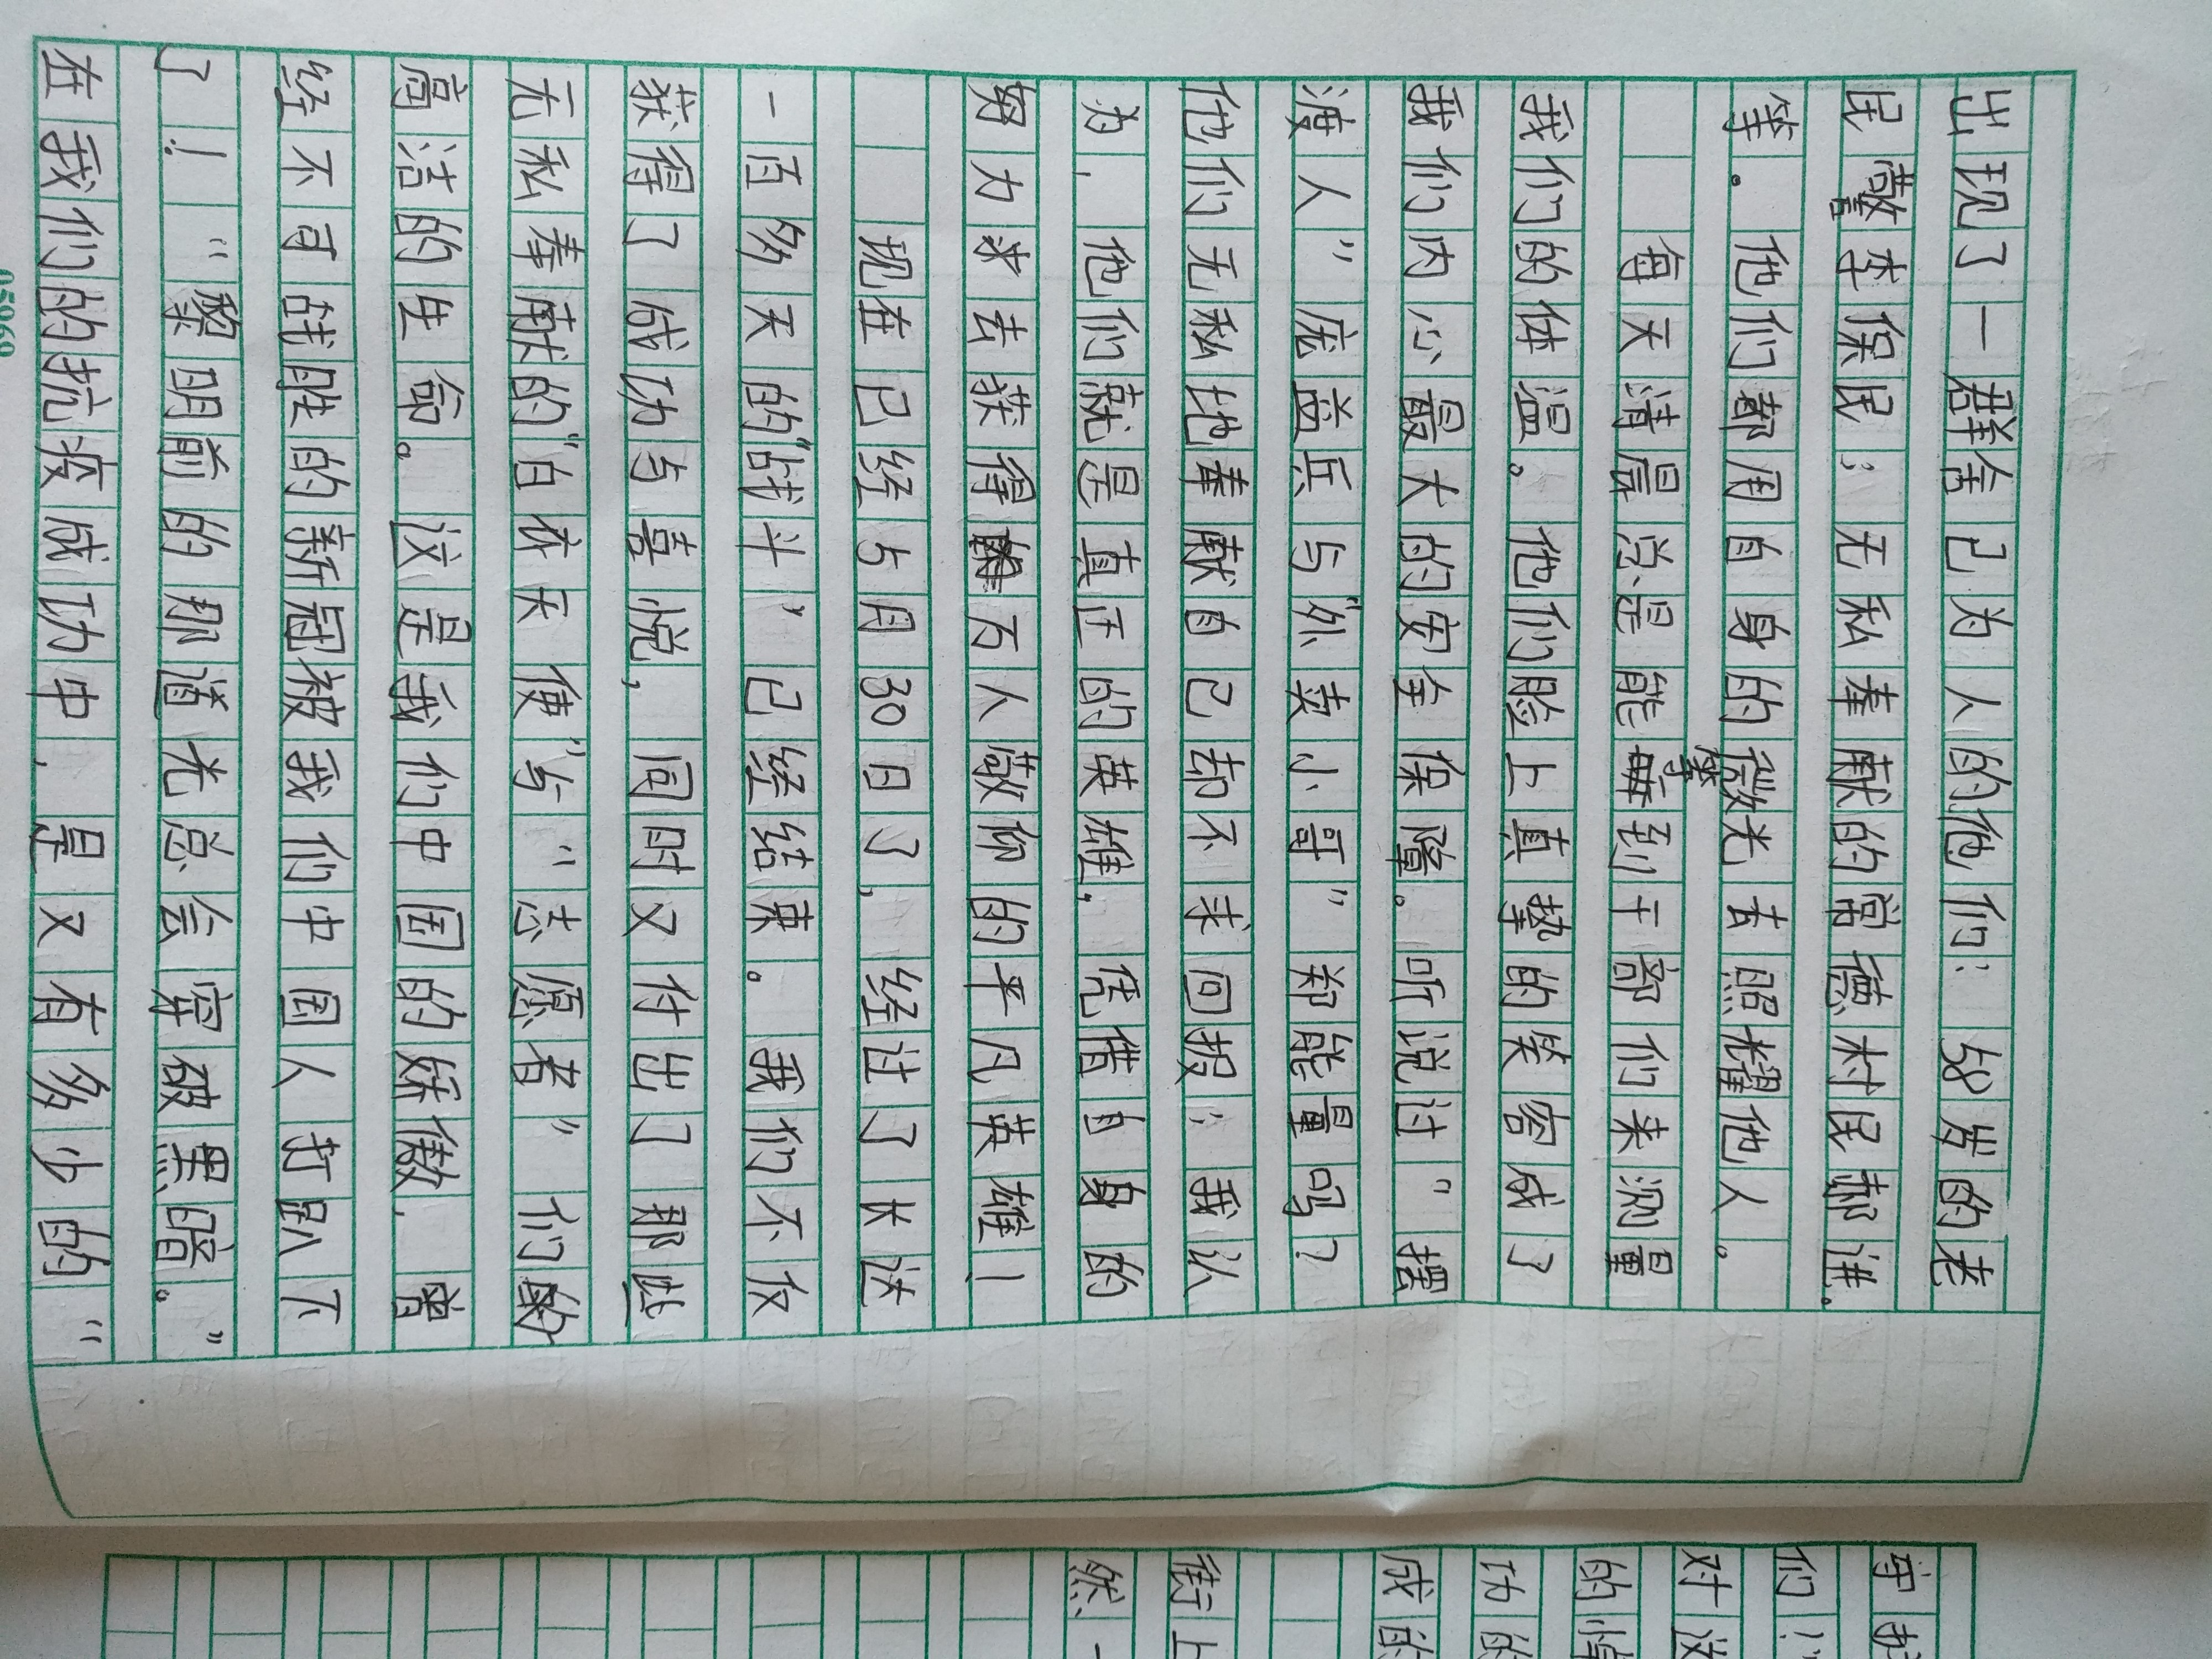 出现了一群舍己为人的他们：58岁的老
民警李保民；无私奉献的常德村民郝进。
等。他们都用自身的微光去照耀他人。
每天清晨总是能等到干部们来测量
我们的体温。他们脸上真挚的笑容成了
我们内心最大的安全保障。听说过"摆
渡人"庞益兵与"外卖小哥"郑能量吗？
他们无私地奉献自己却不求回报；我认
为，他们就是真正的英雄，凭借自身的
努力求去获得万人敬仰的平凡英雄！
现在已经5月30日了，经过了长达
一百多天的"战斗"已经结束。我们不仅
获得了成功与喜悦，同时又付出了那些
无私奉献的"白衣天使"与"志愿者"们的
高洁的生命。这是我们中国的娇傲，曾
经不可战胜的新冠被我们中国人打趴下
了！"黎明前的那道光总会穿破黑暗。"
在我们的抗疫成功中，是又有多少的"
守
们
对这
的
功的
成的
街上
然一
05069